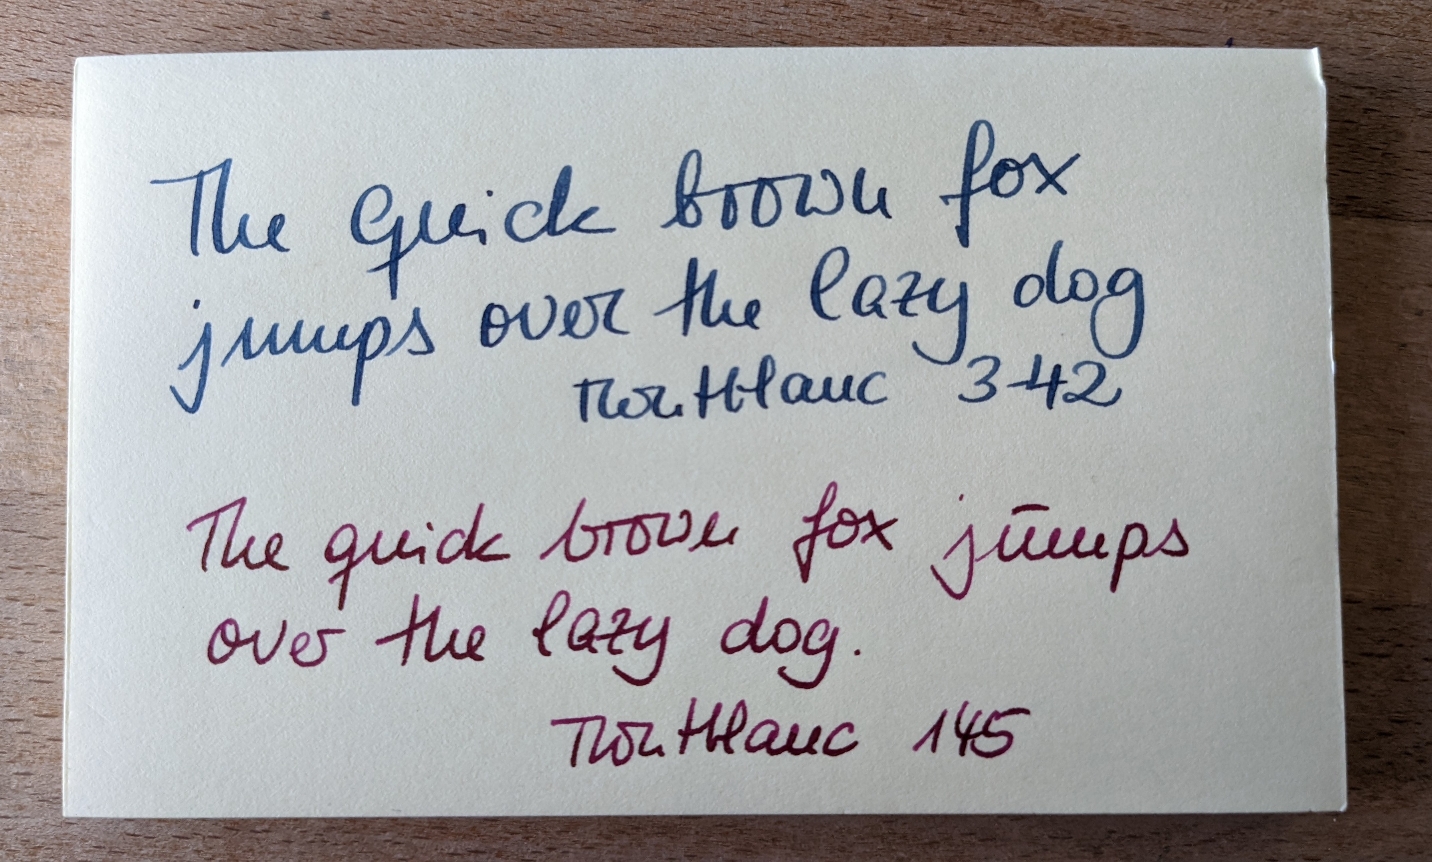 The quick brown fox
jumps over the lazy dog
Montblanc 342
The quick brown fox jumps
over the lazy dog.
Montblanc 145